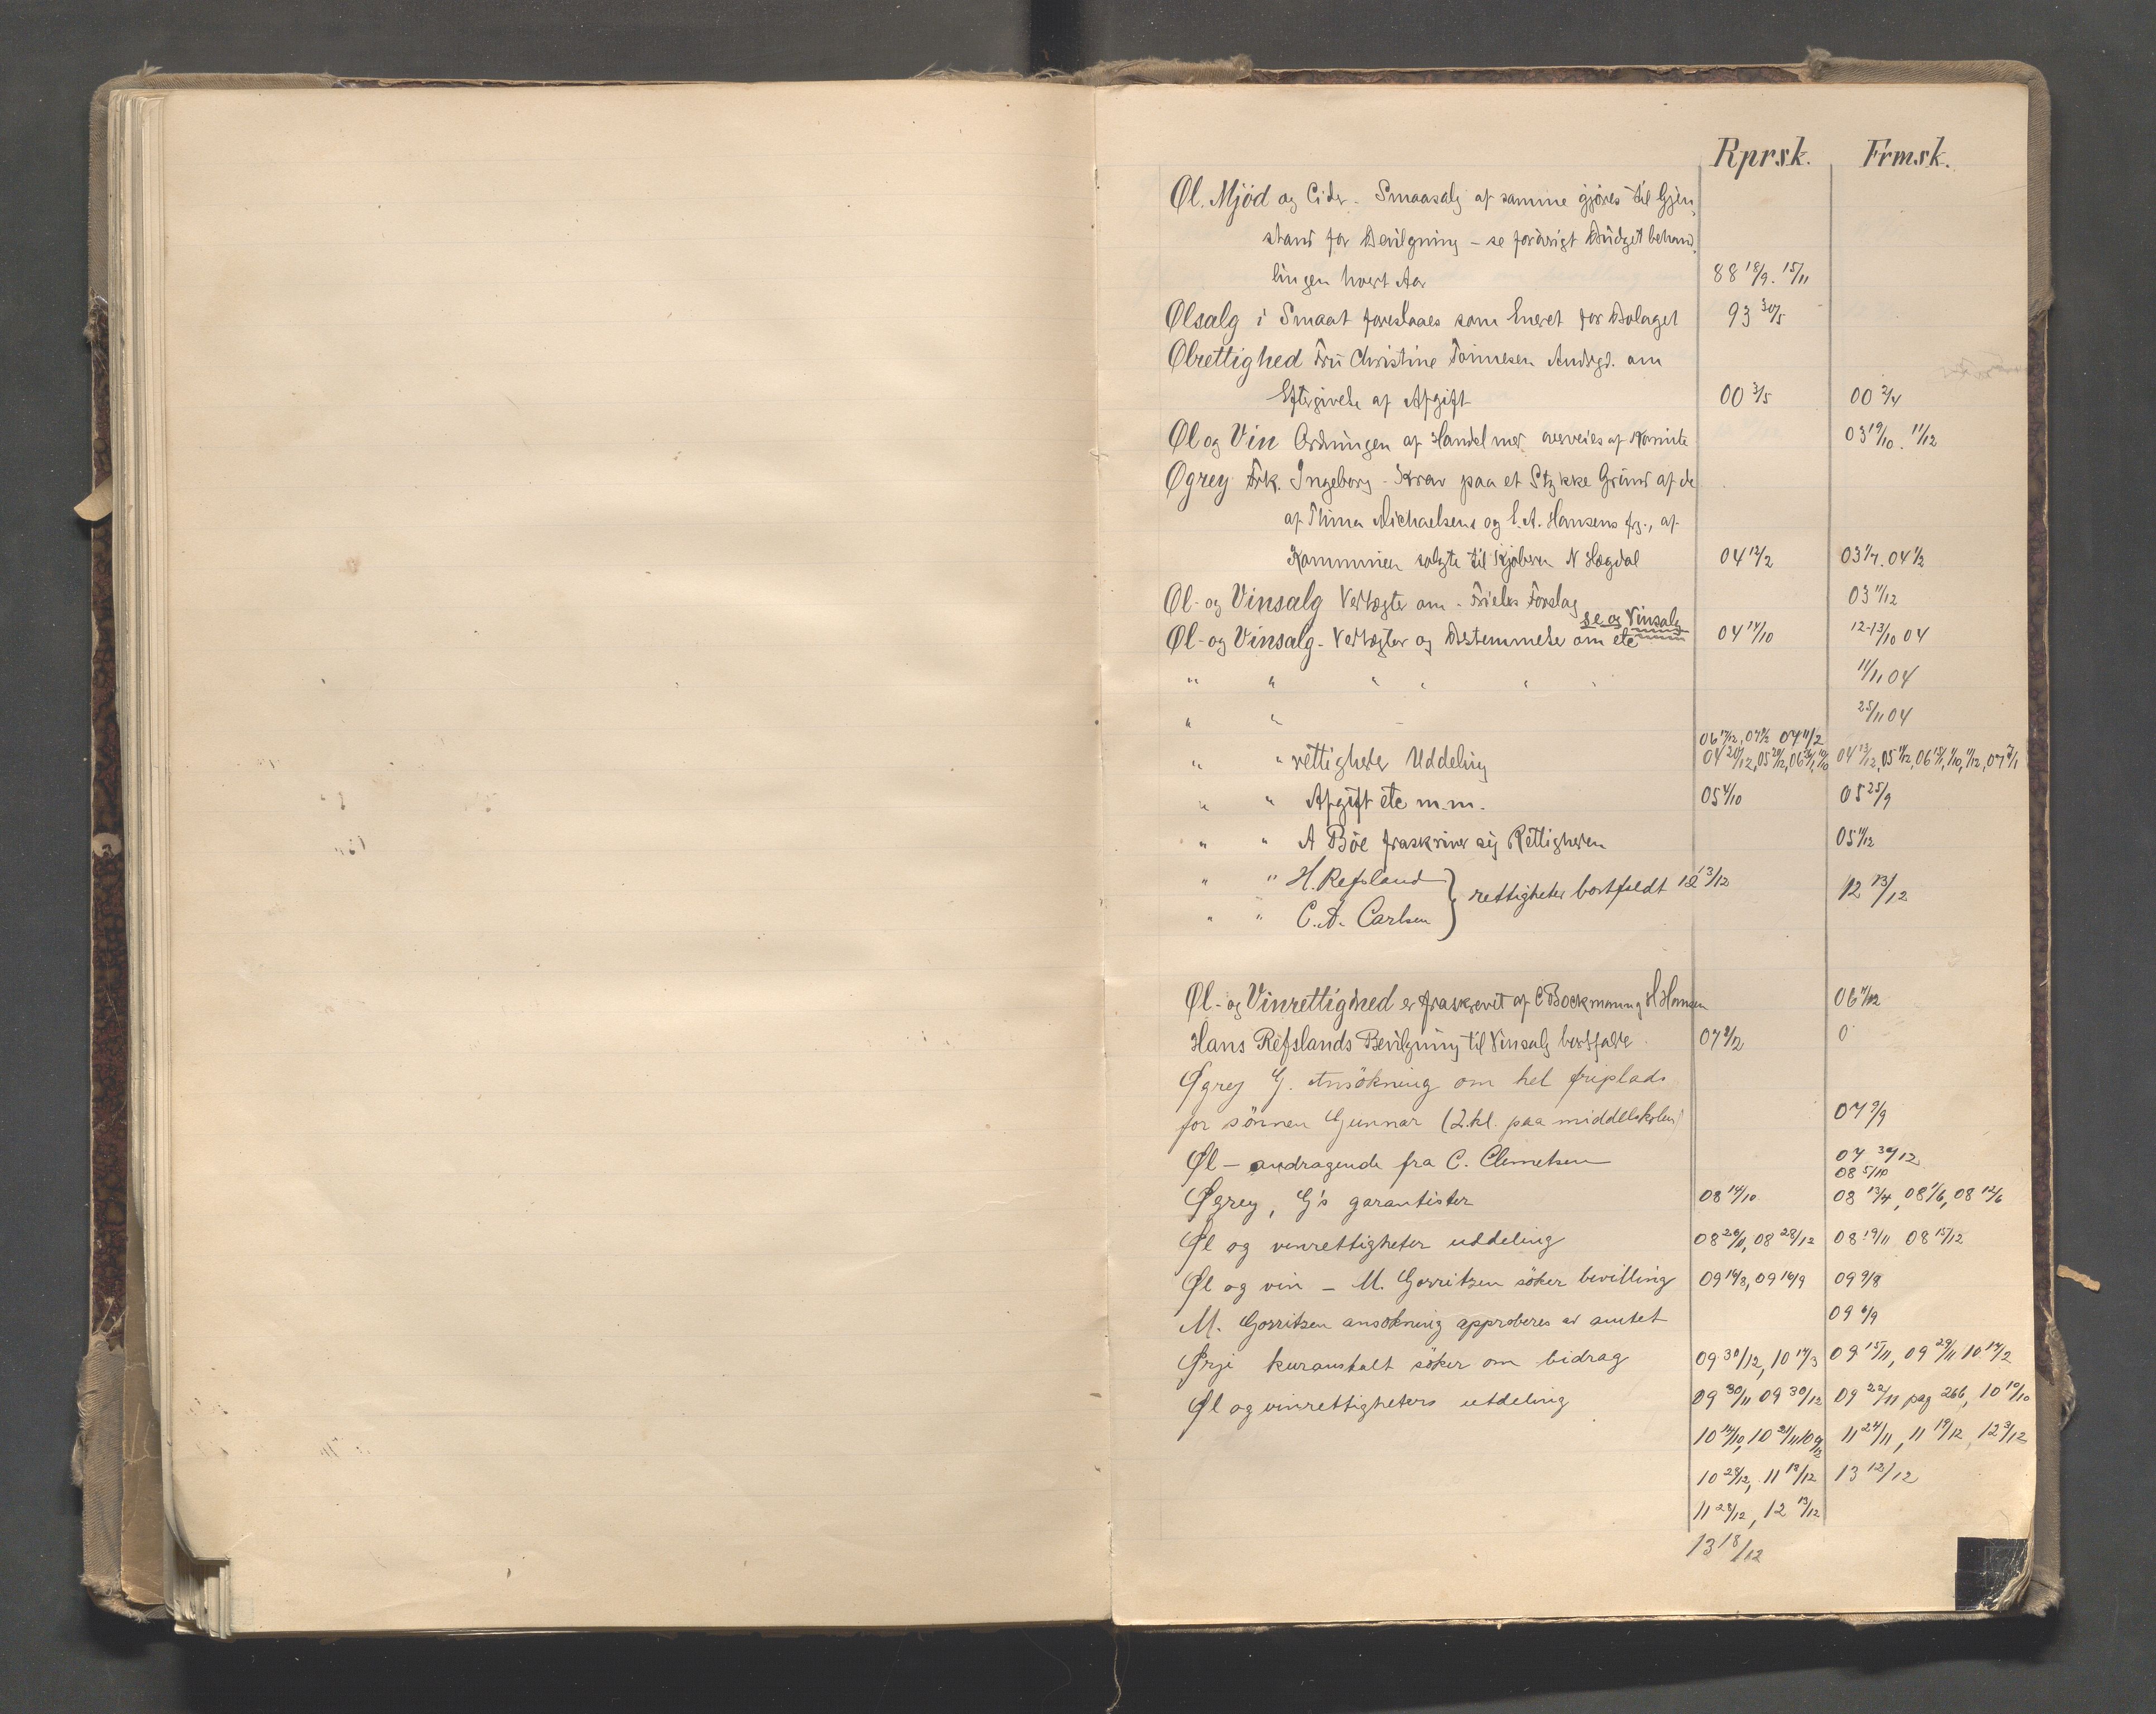 Rprsk. Frmsk.
Øl, Mjöd og Cider. Smaasalg af samme gjöres til Gjen-
stand for Bevilgning - se forövrigt Budgetbehand-
lingen hvert Aar 88 18/9. 15/11
Ølsalg i Smaat foreslaaes som Eneret for Bolaget 93 30/5
Ølrettighed Fru Christine Tönnesen Andrgd. om
Eftergivelse af Afgift 00 3/5 00 2/4
Øl og Vin Ordningen af Handel med overveies af Komite 03 19/10. 11/12
Øgrey Frk. Ingeborg - Krav paa et Stykke Grund af de
af Thina Michaelsens og C. A. Hansens frg., af
Kommunen solgte til Kjöbern N Hegdal 04 12/2 03 1/7. 04 1/2
Øl- og Vinsalg Vedtægter om - Friels Forslag 03 11/12
se og Vinsalg
Øl- og Vinsalg - Vedtægter og Bestemmelse om etc 04 14/10 12-13/10 04
" " " " " " 11/11 04
" " 25/11 04
06 17/12, 07 2/2 07 11/2
" " rettigheder Uddeling 04 20/12, 05 20/12, 06 04 13/12, 05 11/12, 06
" " Afgift etc m.m. 05 4/10 05 25/9
" " A Böe fraskriver sig Rettigheden 05 11/12
" " H. Refsland } rettigheter bortfaldt 12 13/12 12 13/12
" " C. A. Carlsen
Øl- og Vinrettighed er fraskrevet af C Bockmann og H Hansen 06 4/12
Hans Refslands Bevilgning til Vinsalg bortfalde 07 2/2 0
Øgrey G. Ansökning om hel friplads
for sönnen Gunnar (2. kl. paa middelskolen) 07 9/9
Øl - andragende fra C. Clemetsen 07 30/12
08 5/10
Øgrey, G's garantister 08 14/10 08 13/4, 08 1/6, 08 12/6
Øl og vinrettigheter uddeling 08 26/11, 08 28/12 08 19/11 08 15/12
Øl og vin - M. Gorritzen söker bevilling 09 19/8, 09 16/9 09 9/8
M. Gorritzen ansökning approberes av amtet 09 6/9
Ørje kuranstalt söker om bidrag 09 30/12, 10 14/3 09 15/11, 09 29/11 10 14/2
Øl og vinrettigheters utdeling 09 30/11 09 30/12 09 22/11 pag 266, 10 10/10
10 14/10, 10 11 24/11, 11 19/12, 12 3/12
10 28/12, 11 18/12 13 12/12
11 28/12, 12 13/12
13 18/12